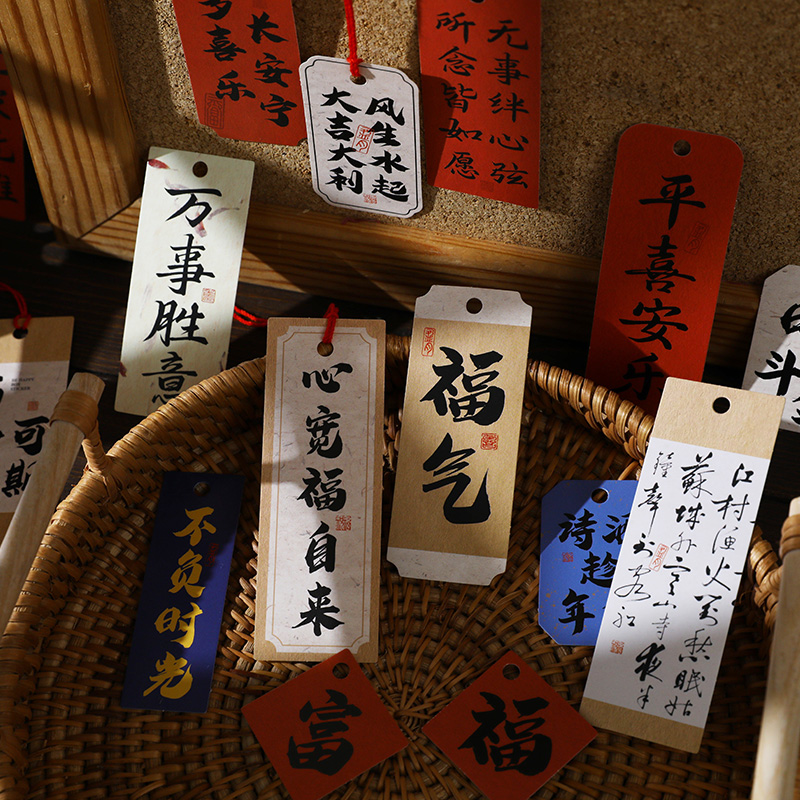 长安宁
多喜乐
风生水起
大吉大利
无事绊心弦
所念皆如愿
万事胜意
平喜安乐
心宽福自来
福气
可
斗
不负时光
酒
诗趁年
江村渔火对愁眠姑
蘇城外寒山寺夜半
鐘聲到客船
富
福